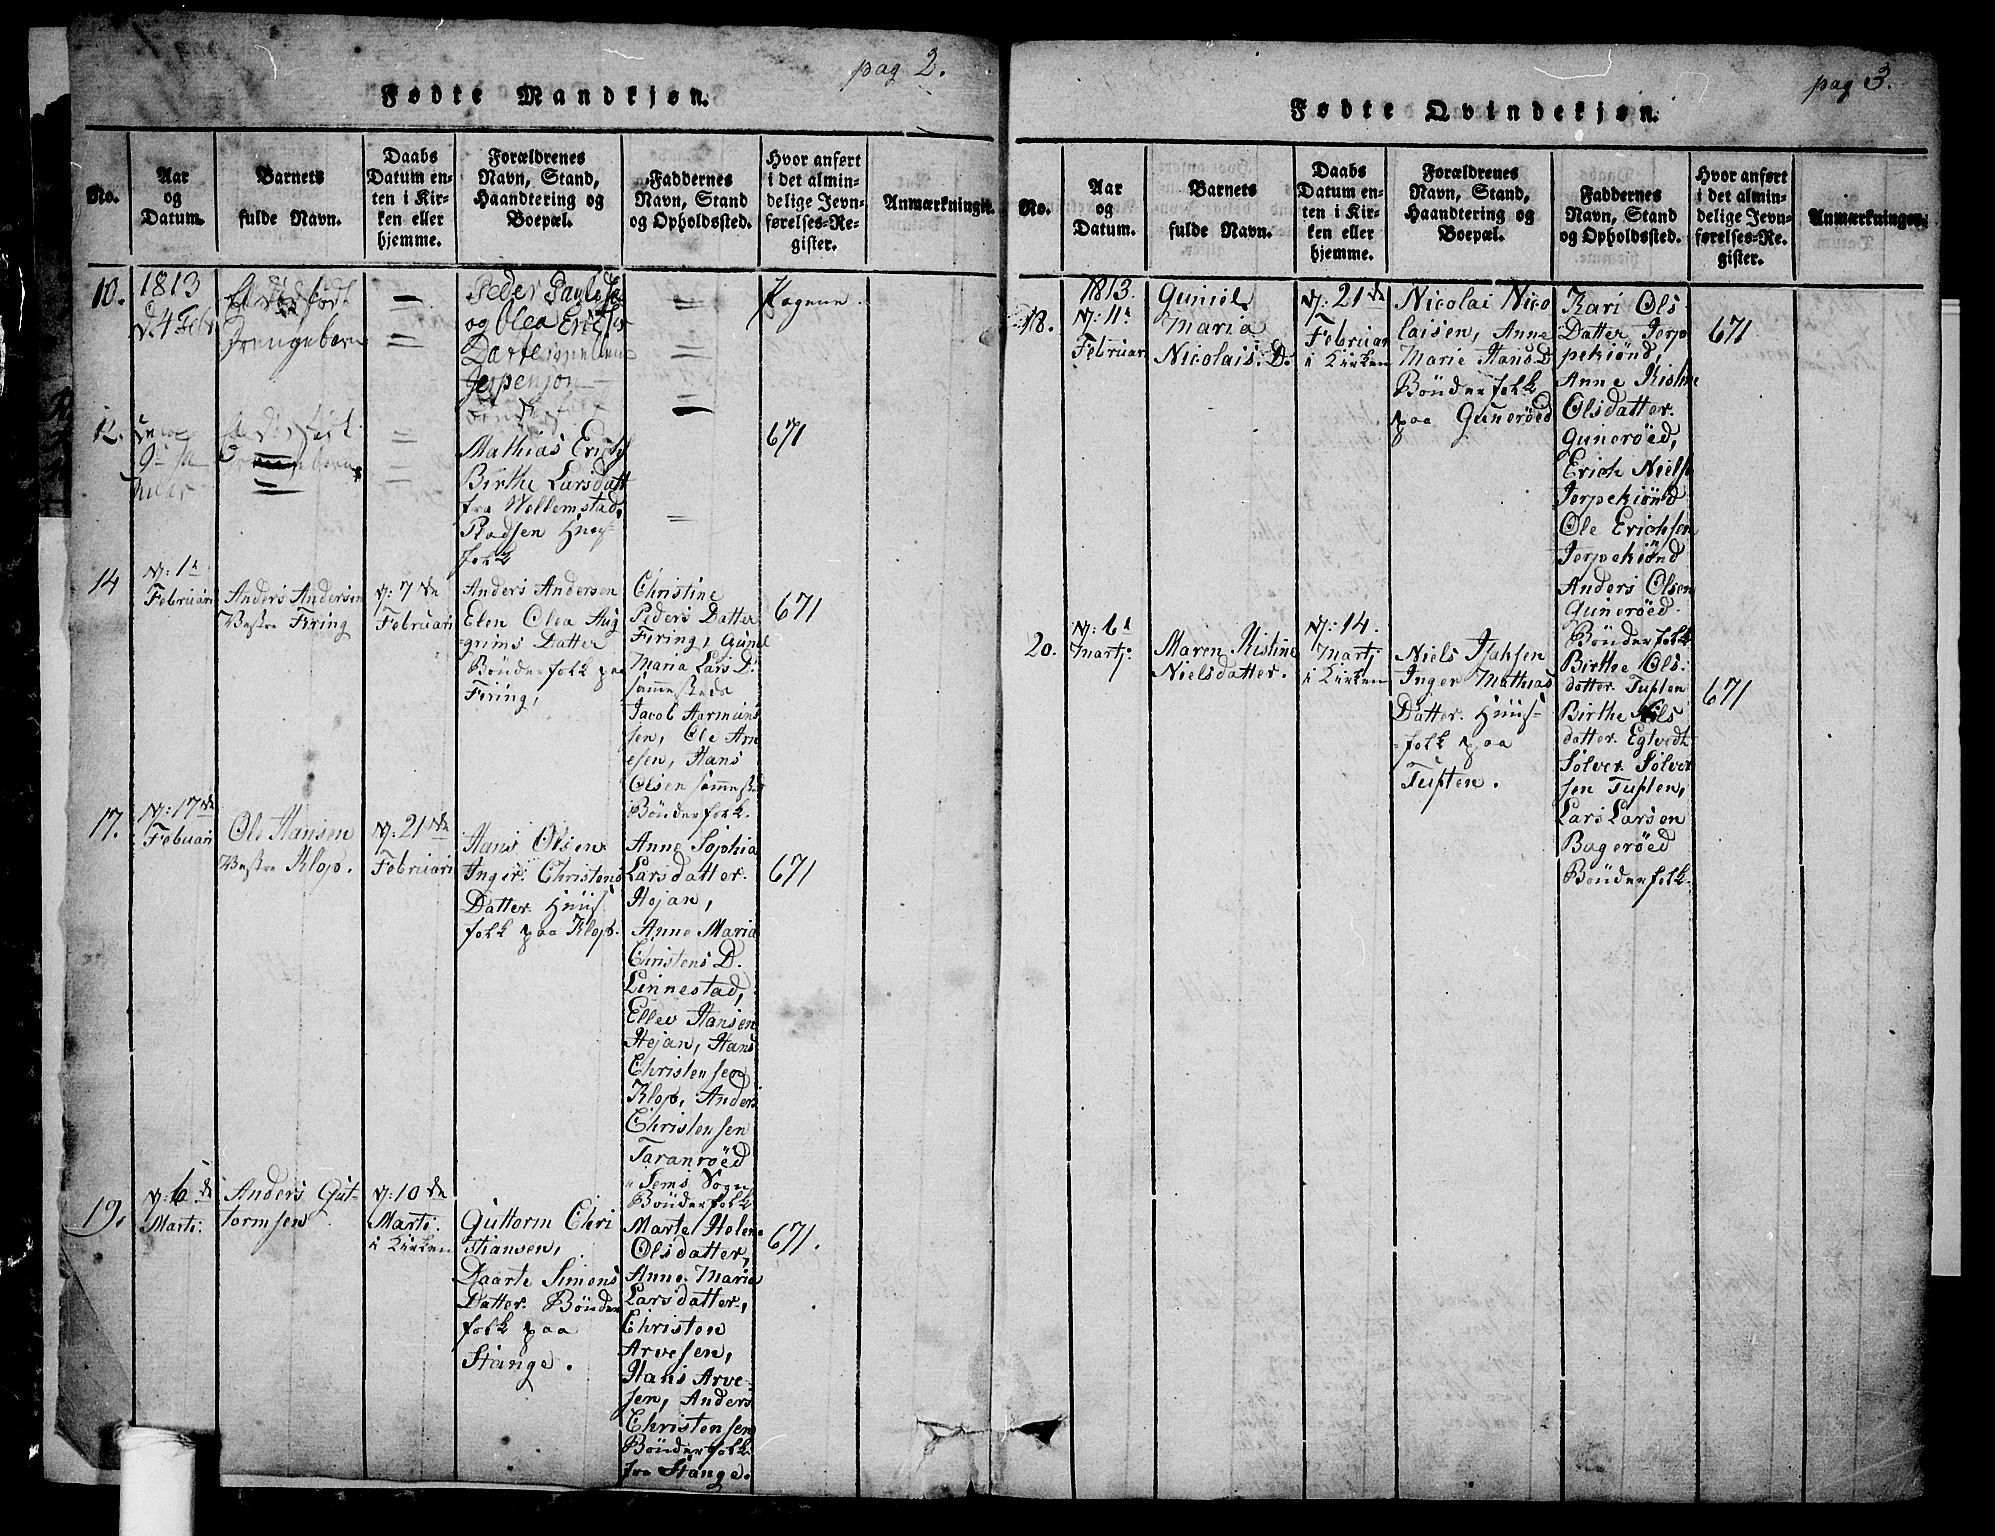 pag 2.
Fødte Mandkjøn.
No.
Aar
og
Datum.
Barnets
fulde Navn.
Daabs
Datum en-
ten i Kir-
ken eller
hjemme.
Forældrenes
Navn, Stand,
Haandtering og
Boepæl.
Faddernes
Navn, Stand
og Opholdssted.
Hvor anført
i det almin-
delige Jevn-
førelses-Re-
gister.
Anmærkninger.
10.
1813
d. 4 Febr
Et dødfødt
Drengebarn
Peder
og Olea
Hagene.
12.
9
Mathias
Birthe Larsdatt
fra Vellemstad,
Pladsen Huus-
folk
671
14
N: 1d
Februari
Anders Andersen
Vestre Firing
N: 7de
Februari
Anders Andersen
Elen Olea Aug
grims Datter
Bönderfolk paa
Firing,
Christine
Peders Datter
Firing, Gunel
Maria Lars D.
sammesteds
Jacob
sen, Ole Arn
esen, Hans
Olsen
Bönderfolk.
671
17.
N: 17de
Febuari
Ole Hansen
Vestre Klop.
N: 21de
Februari
Hans Olsen
Inger Christens
Datter Huus-
folk paa Klop.
Anne Sophia
Larsdatter
Hejan,
Anne Maria
Christens D.
Linnestad,
Ellev Hansen
Hejan, Hans
Christensen
Klop, Anders
Christensen
Taranröed
Sems Sogn
Bönderfolk
671
19.
N: 6de
Marti.
Anders Gut-
tormsen
N: 10de
Marti.
i Kirken
Guttorm Chri
stiansen,
Daarte Simons
Datter Bönder
folk paa
Stange.
Marte Helene
Olsdatter,
Anne Maria
Larsdatter,
Christen
Arvesen,
Hans Arve-
sen, Anders
Christensen
Bönderfolk
fra Stange.
671.
pag 3.
Fødte Qvindekjøn.
No.
Aar
og
Datum.
Barnets
fulde Navn.
Daabs
Datum en-
ten i Kir-
ken eller
hjemme.
Forældrenes
Navn, Stand,
Haandtering og
Boepæl.
Faddernes
Navn, Stand
og Opholdssted.
Hvor anført
i det almin-
delige Jevn-
førelses-Re-
gister.
Anmærkninger.
18.
1813.
N: 11d
Februari
Guniel
Maria
Nicolais. D.
N: 21de
Februari
i Kirken
Nicolai Nico
laisen, Anne
Marie Hans D
Bönderfolk
paa Guneröed
Kari Ols
Datter Jerp
pekiönd,
Anne Kistine
Olsdatter
Guneröed,
Erich Nielse
Jerpekiönd
Ole Erichsen
Jerpekiönd
Anders Olsen
Guneröed
Bönderfolk
671
20.
N: 6d
Martj:
Maren Kistine
Nielsdatter.
N: 14.
Martj
i Kirken
Niels
Inger Mathias
Datter. Huus-
folk paa
Tuften.
Birthe Ols
datter Tuften
Birthe Nils
datter Egtvedt
Sølver Sølver
sen Tuften,
Lars Larsen
Bugeröed
Bönderfolk.
671